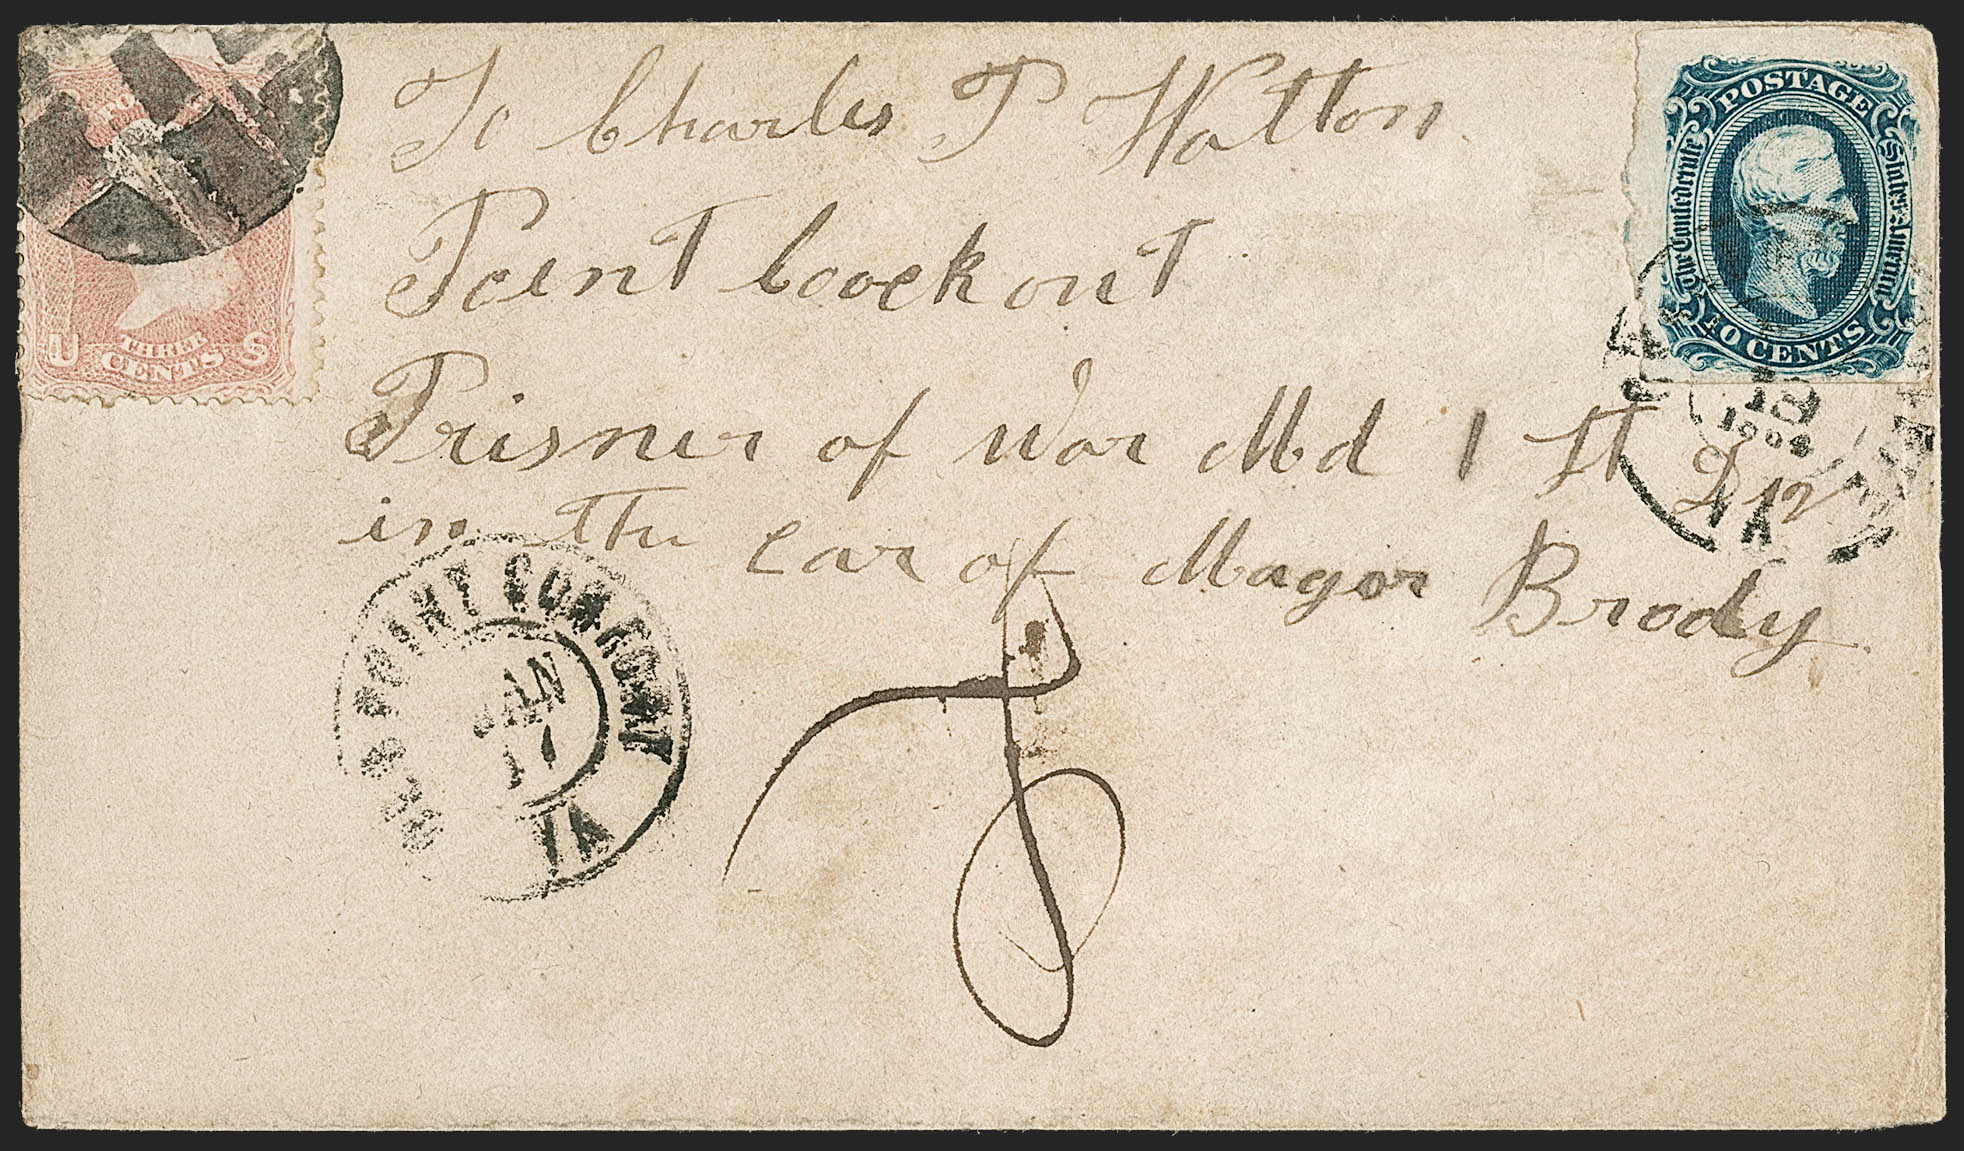 To Charles T Watton
Point Loockout
Prisner of War Md 1 St Div
in the car of Magor Brody
U THREE CENTS S
POSTAGE
The Confederate
States of America
10 CENTS
18
VA
OLD POINT COMFORT
JAN
17
VA